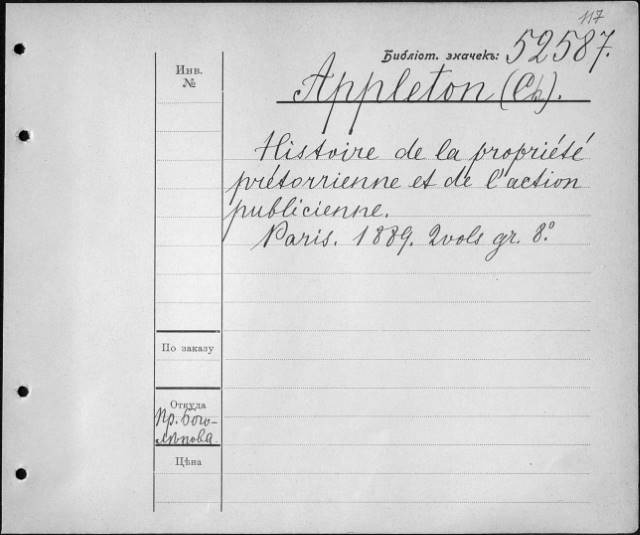 117
Библіот. значекъ: 52587.
Инв.
№
Appleton (Ch).
Histoire de la propriété
prétorrienne et de l'action
publicienne.
Paris. 1889. 2vols gr. 8°
По заказу
Откуда
Пр. Бого-
лѣпова
Цѣна